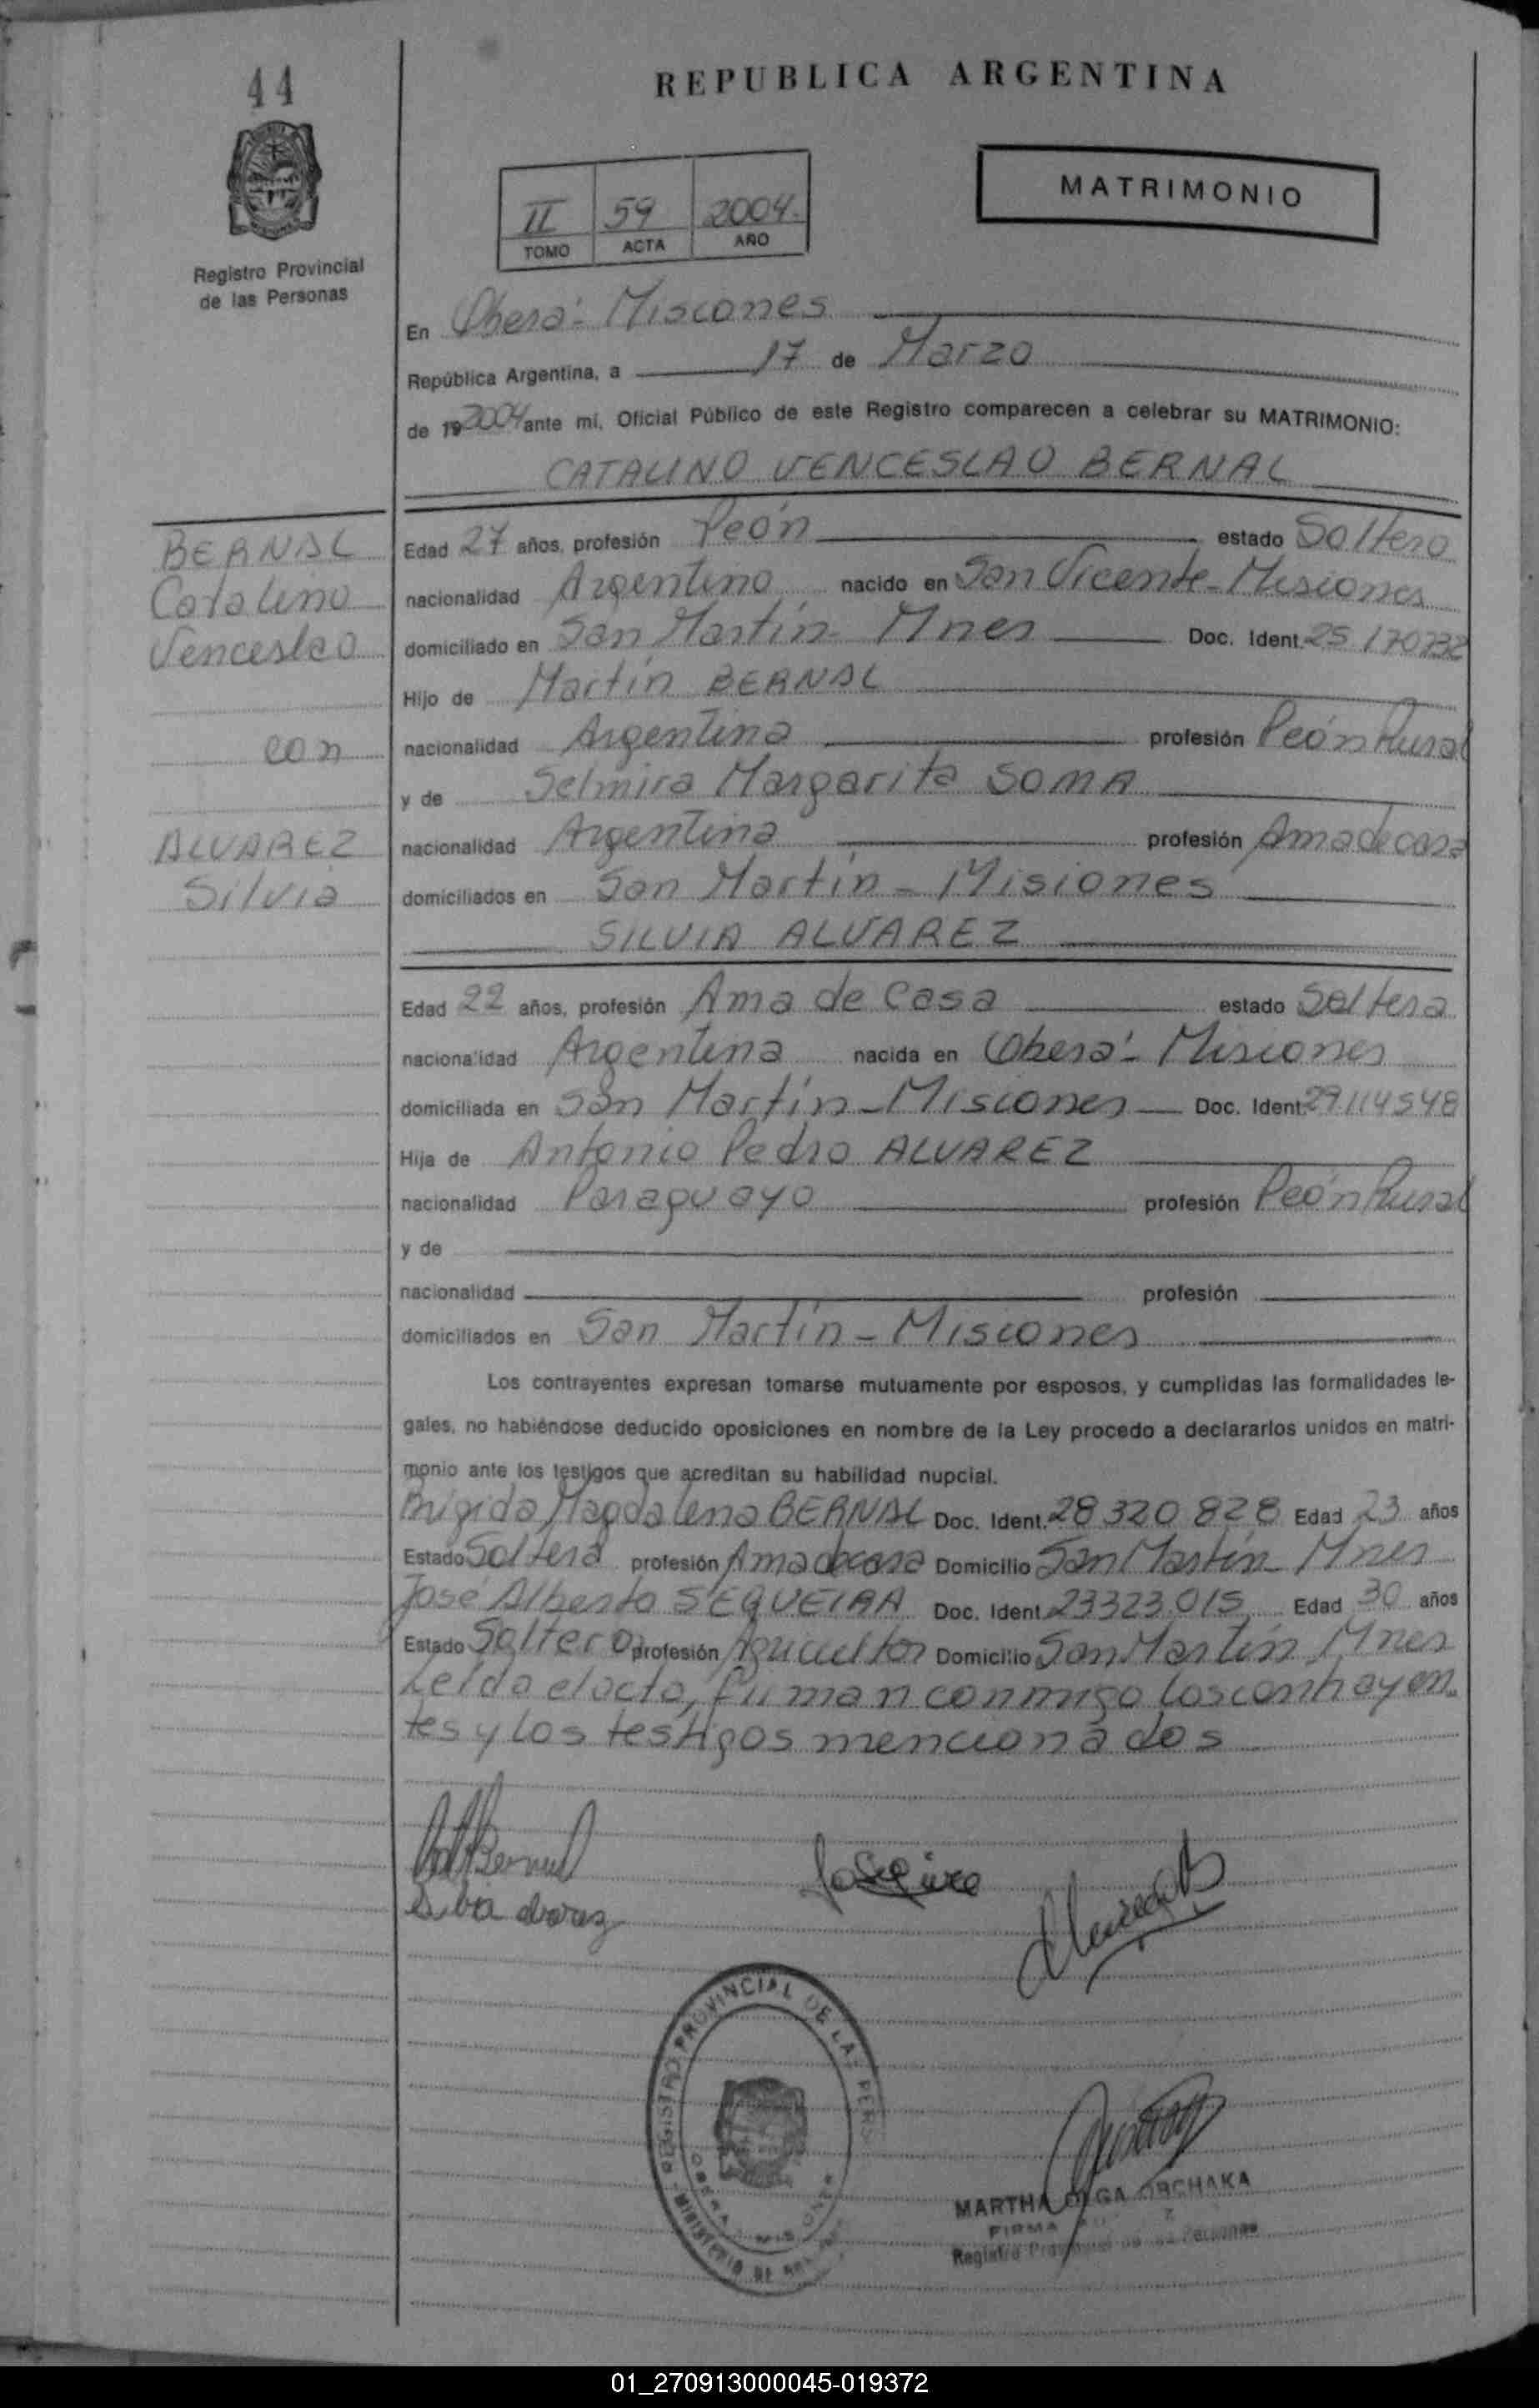 44
REPUBLICA ARGENTINA
MATRIMONIO
II 59 2004.
TOMO ACTA AÑO
Registro Provincial
de las Personas
En Oberá - Misiones
República Argentina, a 17 de Marzo
de 19 2004 ante mí, Oficial Público de este Registro comparecen a celebrar su MATRIMONIO:
CATALINO VENCESLAO BERNAL
BERNAL
Catalino
Venceslao
con
ALVAREZ
Silvia
Edad 27 años, profesión Peón estado Soltero
nacionalidad Argentino nacido en San Vicente - Misiones
domiciliado en San Martín - Mnes Doc. Ident. 25 170732
Hijo de Martín BERNAL
nacionalidad Argentina profesión Peón Rural
y de Selmira Margarita SOMA
nacionalidad Argentina profesión Ama de casa
domiciliados en San Martín - Misiones
SILVIA ALVAREZ
Edad 22 años, profesión Ama de Casa estado Soltera
nacionalidad Argentina nacida en Oberá - Misiones
domiciliada en San Martín - Misiones Doc. Ident. 29.114548
Hija de Antonio Pedro ALVAREZ
nacionalidad Paraguayo profesión Peón Rural
y de
nacionalidad profesión
domiciliados en San Martín - Misiones
Los contrayentes expresan tomarse mutuamente por esposos, y cumplidas las formalidades le-
gales, no habiéndose deducido oposiciones en nombre de la Ley procedo a declararlos unidos en matri-
monio ante los testigos que acreditan su habilidad nupcial.
Brígida Magdalena BERNAL Doc. Ident. 28 320 828 Edad 23 años
Estado Soltera profesión Ama de casa Domicilio San Martín - Mnes
José Alberto SEQUEIRA Doc. Ident. 23323.015 Edad 30 años
Estado Soltero profesión Agricultor Domicilio San Martín Mnes
Leída el acta, firman conmigo los contrayen
tes y los testigos mencionados
REGISTRO PROVINCIAL DE LAS PERS
MINISTERIO DE
MARTHA OLGA ORCHAKA
FIRMA
Registro Provincial de las Personas
01_270913000045-019372